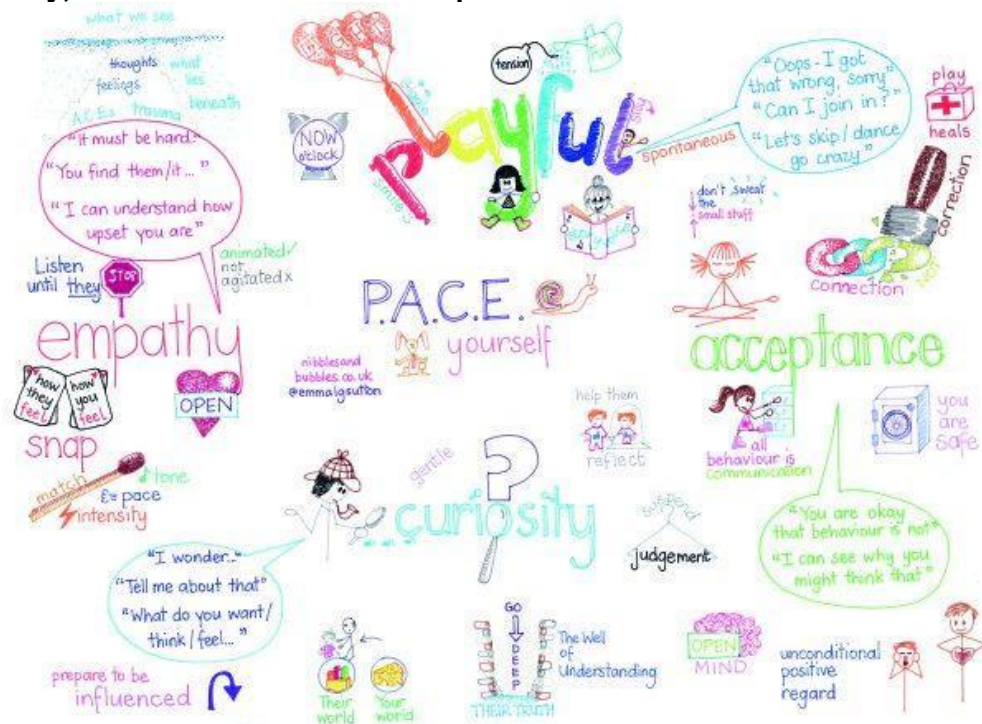 what we see
thoughts
feelings
what
lies
beneath
A.C.Es trauma
"it must be hard."
"You find them/it..."
"I can understand how
upset you are"
Listen
until they
STOP
animated✓
not
agitated x
empathy
how
they
feel
how
you
feel
OPEN
snap
match
tone
pace
intensity
NOW
o'clock
tension
fun
playful
smile
silly
spontaneous
"Oops - I got
that wrong, sorry"
"Can I join in?"
"Let's skip/dance
go crazy"
play
heals
connection
connection
don't sweat
the
small stuff
P.A.C.E.
yourself
nibblesand
bubbles.co.uk
@emmalgsutton
acceptance
all
behaviour is
communication
you
are
safe
"You are okay
that behaviour is not"
"I can see why you
might think that"
help them
reflect
gentle
?
...curiosity
suspend
judgement
"I wonder..."
"Tell me about that"
"What do you want/
think/feel..."
prepare to be
influenced
Their
world
Your
world
GO
DEEP
The Well
of
Understanding
THEIR TRUTH
OPEN
MIND
unconditional
positive
regard